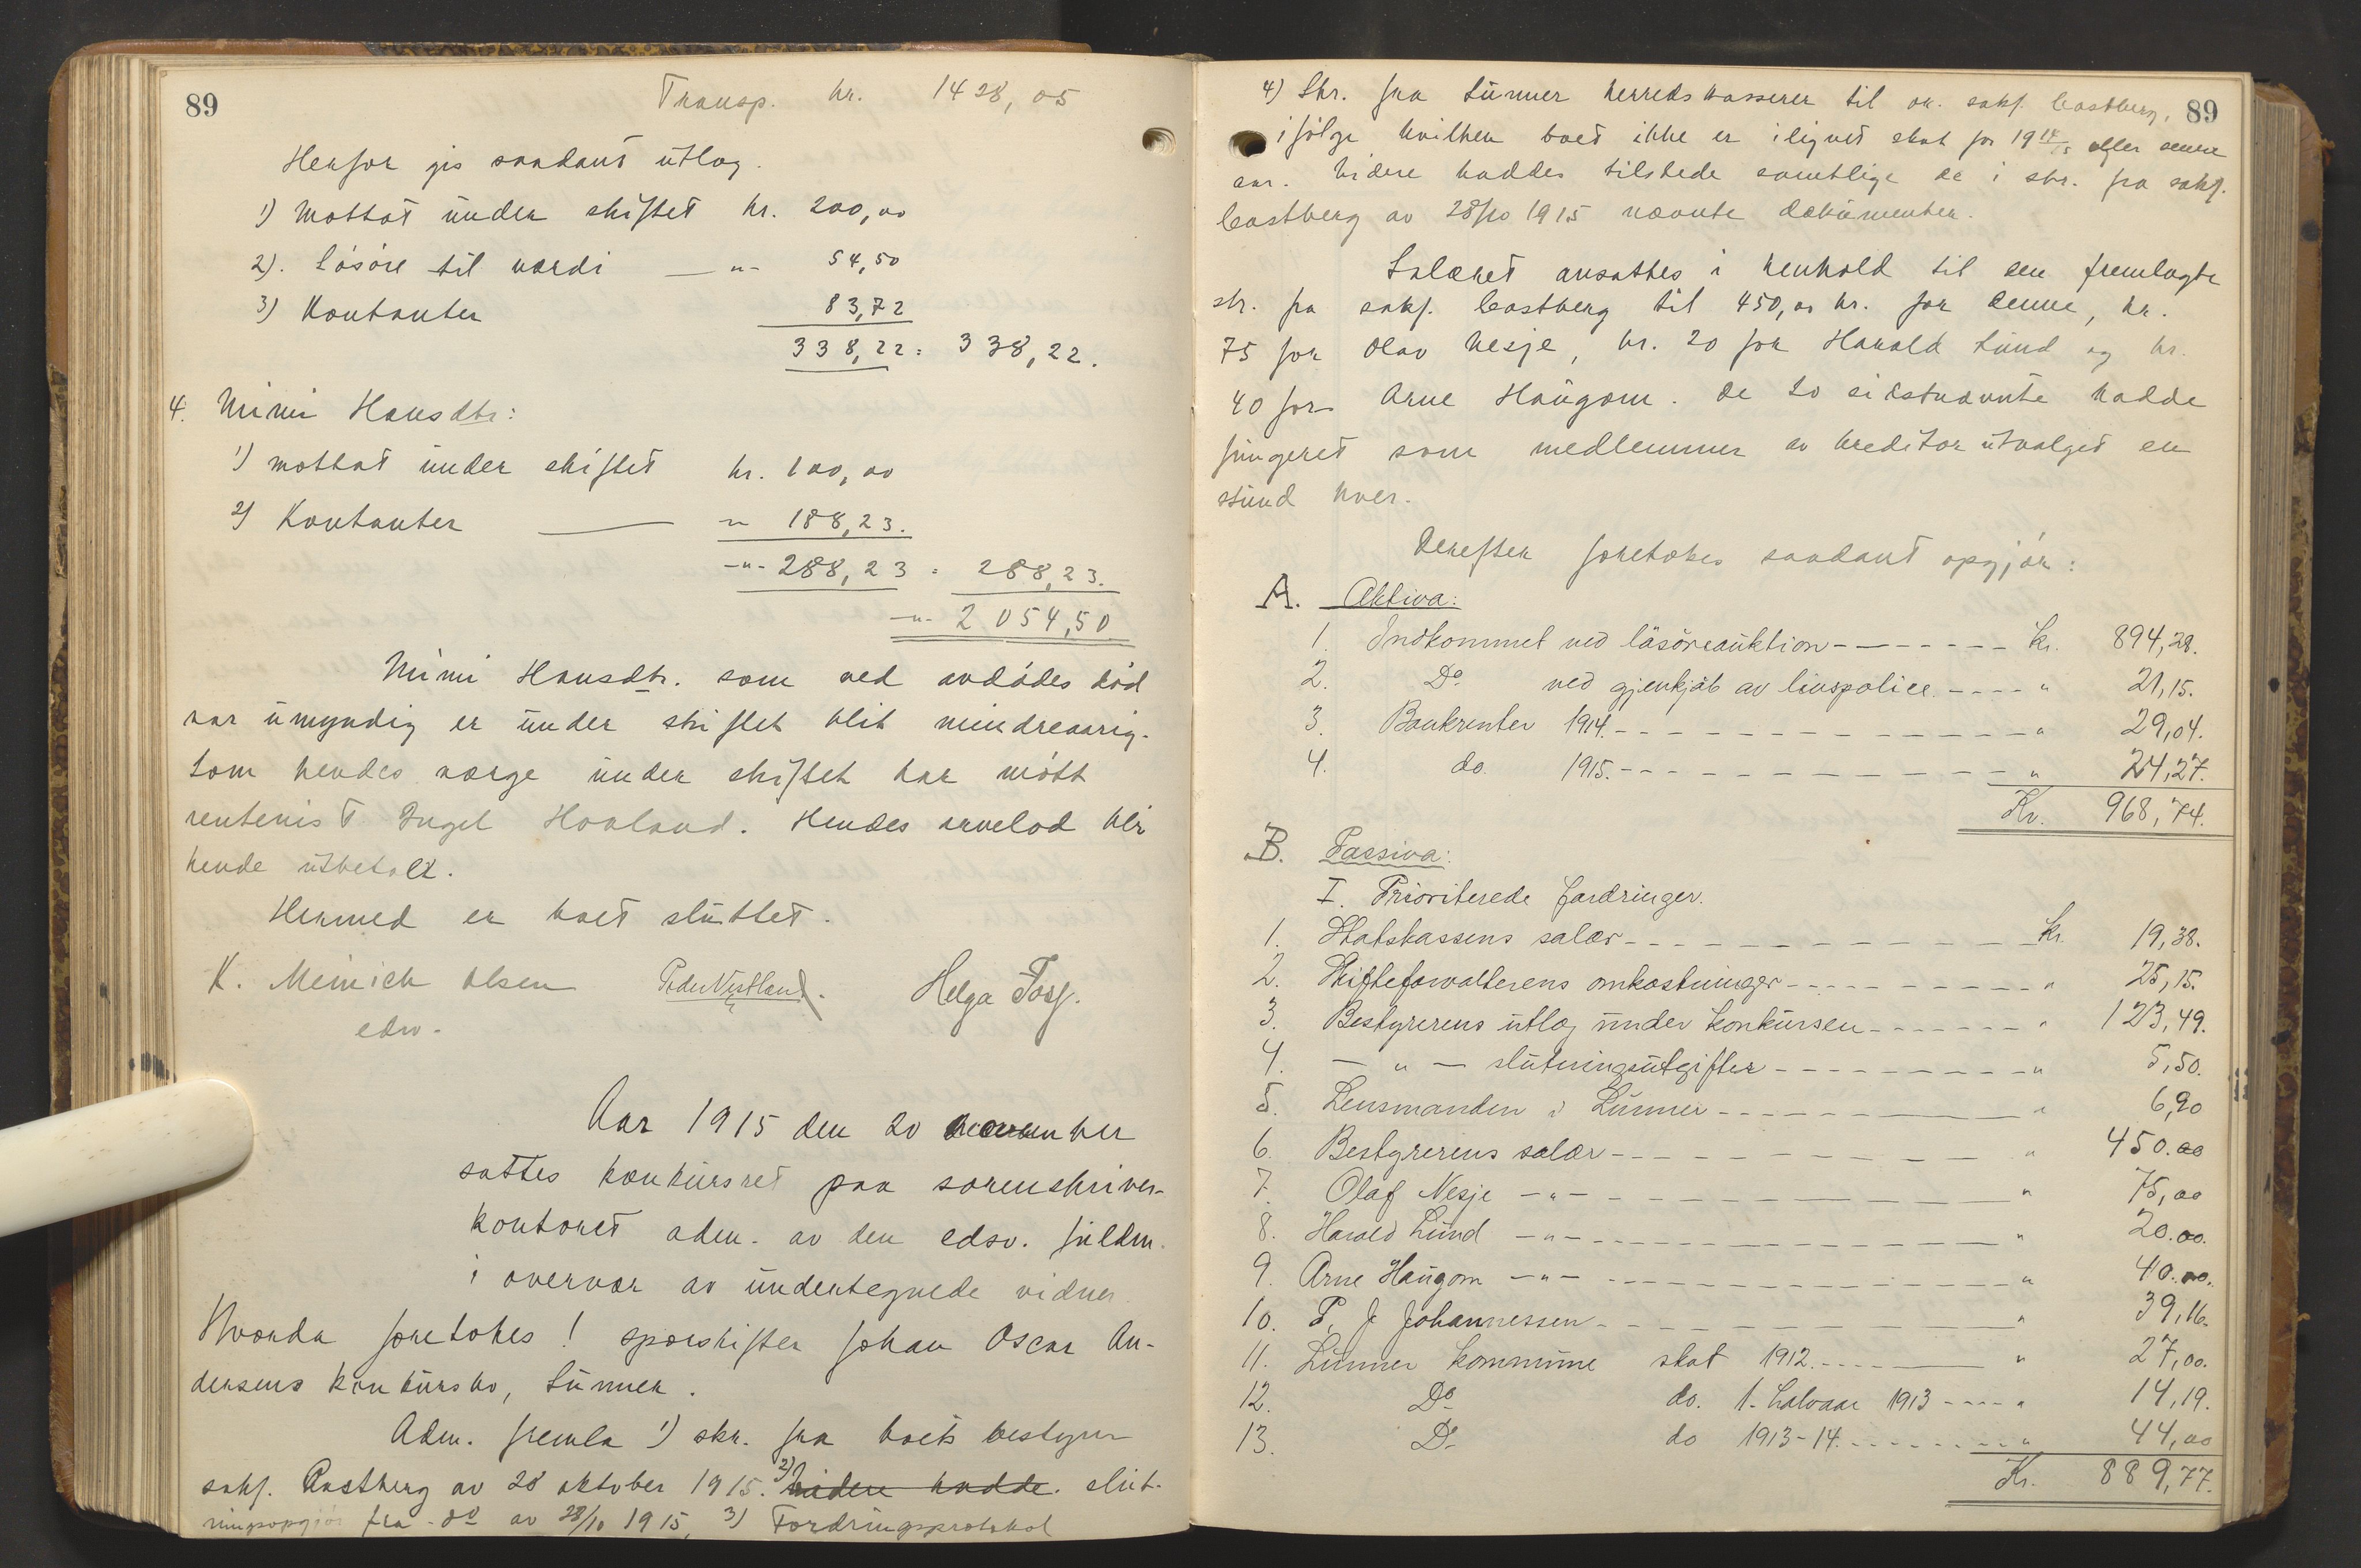 89
Transp. kr. 1428,05
Herfor gis saadant utlæg.
1) Mottat under skiftet kr. 200,00
2). Løsøre til værdi — " - 54,50
3) Kontanter 83,72
338,22 = 338,22.
4. Mimi Hansdtr:
1) mottat under skiftet kr. 100,00
2) Kontanter — " 188,23.
-"- 288,23 = 288,23.
-"- 2054,50
Mimi Hansdtr. som ved avdødes død
var umyndig er under skiftet blit mindreaarig.
Som hendes værge under skiftet har møtt
rentenist Ingel Hovland. Hendes arvelod blir
hende utbetalt.
Hermed er boet sluttet.
K. Meinich Olsen Peder Vestland. Helga Foss.
edsv.
Aar 1915 den 20 november
sattes konkursret paa sorenskriver-
kontoret adm. av den edsv. fuldm.
i overvær av undertegnede vidner.
Hvorda foretokes! sporskifter Johan Oscar An-
dersens konkursbo, Lunner.
Adm. fremla 1) skr. fra boets bestyrer
sakf. Castberg av 28 oktober 1915. 2) videre hadde. slut-
ningsopgjør fra do av 28/10 1915, 3) Fordringsprotokol
89
4) Skr. fra Lunner herredskasserer til or. sakf. Castberg,
ifølge hvilken boet ikke er ilignet skat for 1914/15 eller senere
aar. Videre haddes tilstede samtlige de i skr. fra sakf.
Castberg av 28/10 1915 nævnte dokumenter.
Salæret ansattes i henhold til den fremlagte
skr. fra sakf. Castberg til 450,00 kr. for denne, kr.
75 for Olav Nesje, kr. 20 for Harald Lund og kr.
40 for Arne Haugom. De to sidstnævnte hadde
fungeret som medlemmer av kreditorutvalget en
stund hver.
Derefter foretokes saadant opgjør:
A. Aktiva:
1. Indkommet ved løsøreauktion - - - - - - - Kr. 894,28.
2. Do ved gjenkjøb av livspolice - - - - " 21,15.
3. Bankrenter 1914. - - - - - - - - - - - - " 29,04.
4. do. 1915. - - - - - - - - - - - " 24,27.
Kr. 968,74.
B. Passiva:
I. Prioriterede fordringer.
1. Statskassens salær - - - - - - - - - - - Kr. 19,38.
2. Skifteforvalterens omkostninger - - - - - - - - " 25,15.
3. Bestyrerens utlæg under konkursen - - - - - - " 123,49.
4. — " — slutningsutgifter - - - - - - - - " 5,50.
5. Lensmanden i Lunner - - - - - - " 6,90
6. Bestyrerens salær - - - - - - - - - - " 450.00
7. Olaf Nesje - " - - - - - - - - " 75,00
8. Harald Lund - " - - - - - - - - " 20.00.
9. Arne Haugom - " - - - - - - - - " 40.00.
10. P. J. Johannessen - - - - - - - - " 39,16.
11. Lunner kommune skat 1912. - - - - - " 27,00.
12. Do do. 1. halvaar 1913 - - - - " 14,19.
13. Do do 1913-14. - - - - - - - - " 44,00
Kr. 889,77.